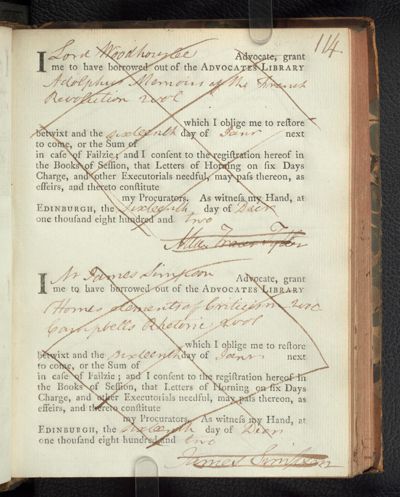 114.
I Lord Woodhouselee Advocate, grant
me to have borrowed out of the ADVOCATES LIBRARY
Adolphus Memoirs of the French
Revolution 2vol
which I oblige me to reſtore
betwixt and the sixteenth day of Janr next
to come, or the Sum of
in caſe of Failzie; and I conſent to the regiſtration hereof in
the Books of Seſſion, that Letters of Horning on ſix Days
Charge, and other Executorials needful, may paſs thereon, as
effeirs, and thereto conſtitute
my Procurators. As witneſs my Hand, at
EDINBURGH, the sixteenth day of Decr
one thouſand eight hundred and two
Fraser Tytler
I Mr James Simpson Advocate, grant
me to have borrowed out of the ADVOCATES LIBRARY
Homes elements of Criticism 2vol
Campbells Rhetoric 2vol
which I oblige me to reſtore
betwixt and the sixteenth day of Janr next
to come, or the Sum of
in caſe of Failzie; and I conſent to the regiſtration hereof in
the Books of Seſſion, that Letters of Horning on ſix Days
Charge, and other Executorials needful, may paſs thereon, as
effeirs, and thereto conſtitute
my Procurators. As witneſs my Hand, at
EDINBURGH, the sixteenth day of Decr
one thouſand eight hundred and two
James Simpson